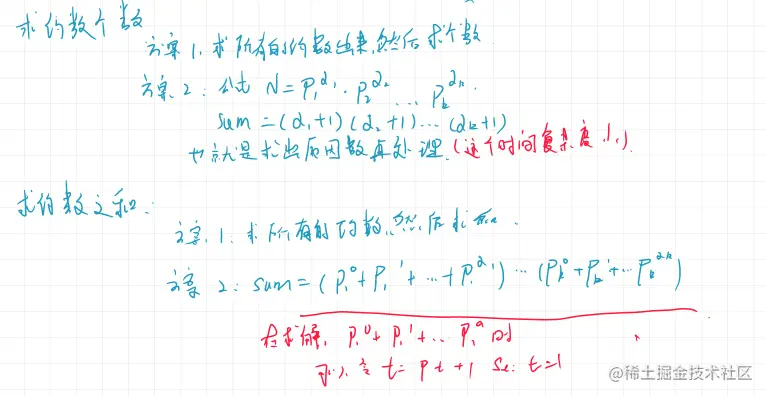 求约数个数
方案1. 求所有的约数出来,然后求个数
方案2: 公式 N=P₁^α₁·P₂^α₂ ... Pₖ^αₖ.
sum=(α₁+1)(α₂+1)...(αₖ+1)
也就是求出质因数再处理.(这个时间复杂度小)
求约数之和:
方案.1. 求所有的约数,然后求和.
方案 2: sum=(P₁⁰+P₁¹+...+P₁^α₁)...(Pₖ⁰+Pₖ¹+...Pₖ^αₖ)
在求解, P₁⁰+P₁¹+... P₁^a 时
可以 t=Pt+1 t=1
@稀土掘金技术社区